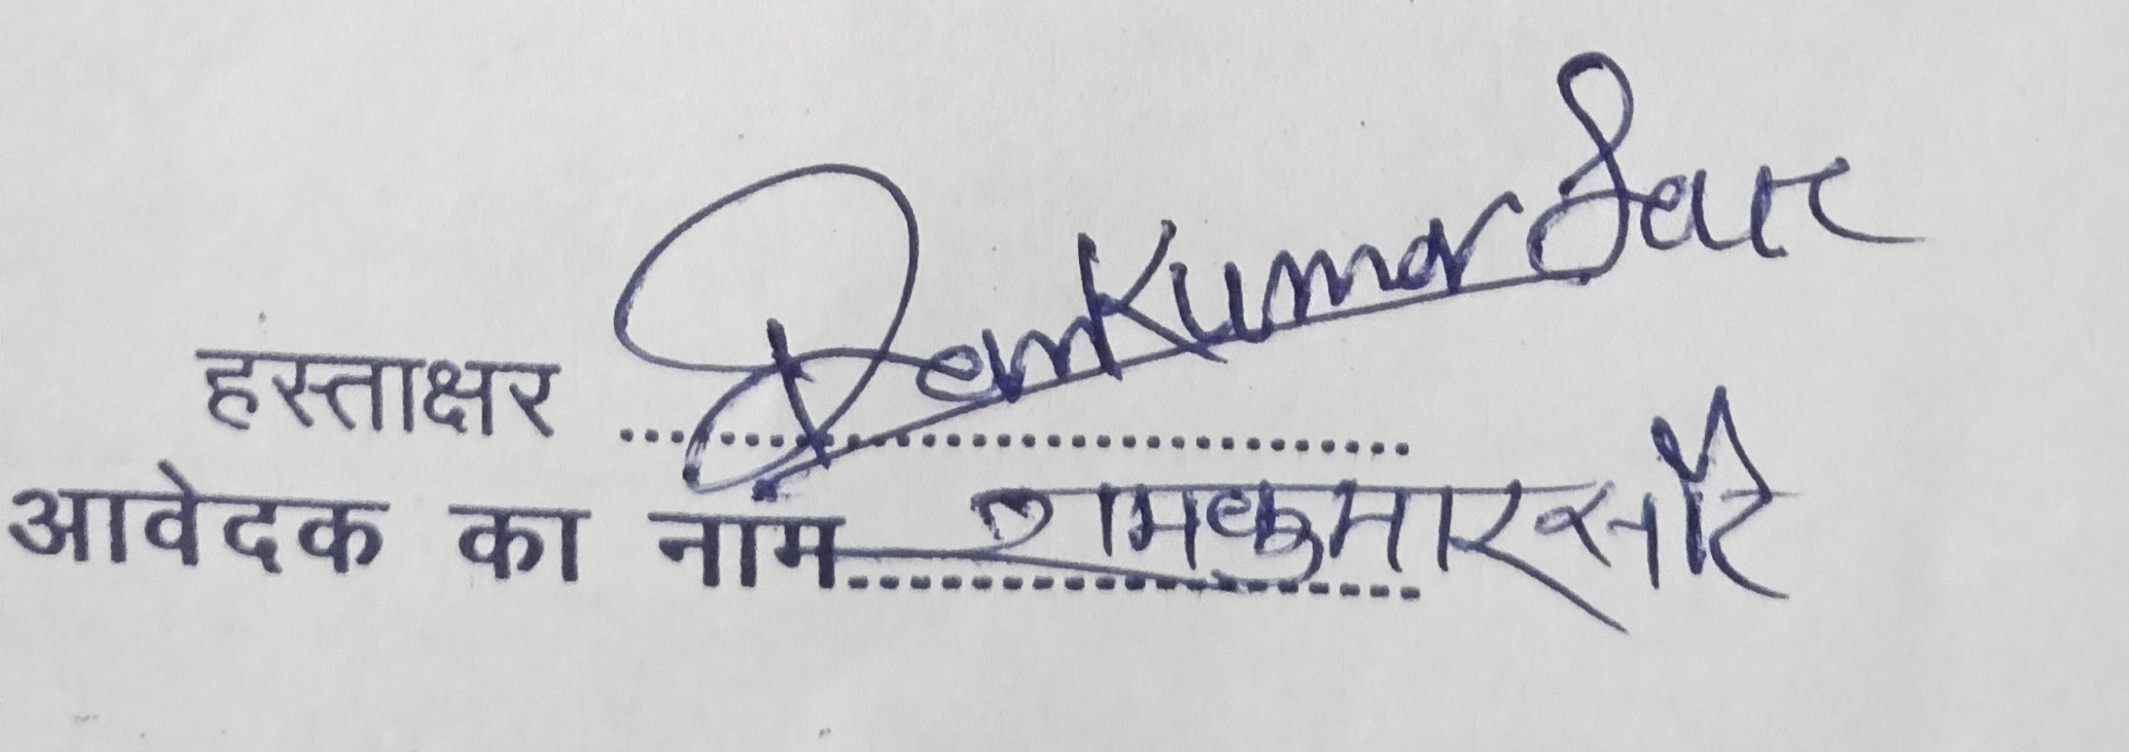 हस्ताक्षर .......... RamKumar Saur
आवेदक का नाम .......... रामकुमार सौर